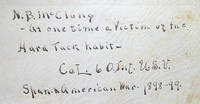 N. B. McClung
- At one time a Victim of the
Hard Tack habit -
Co L. 6 O. Inf. U.S.V.
Span & American War. 1898-99.